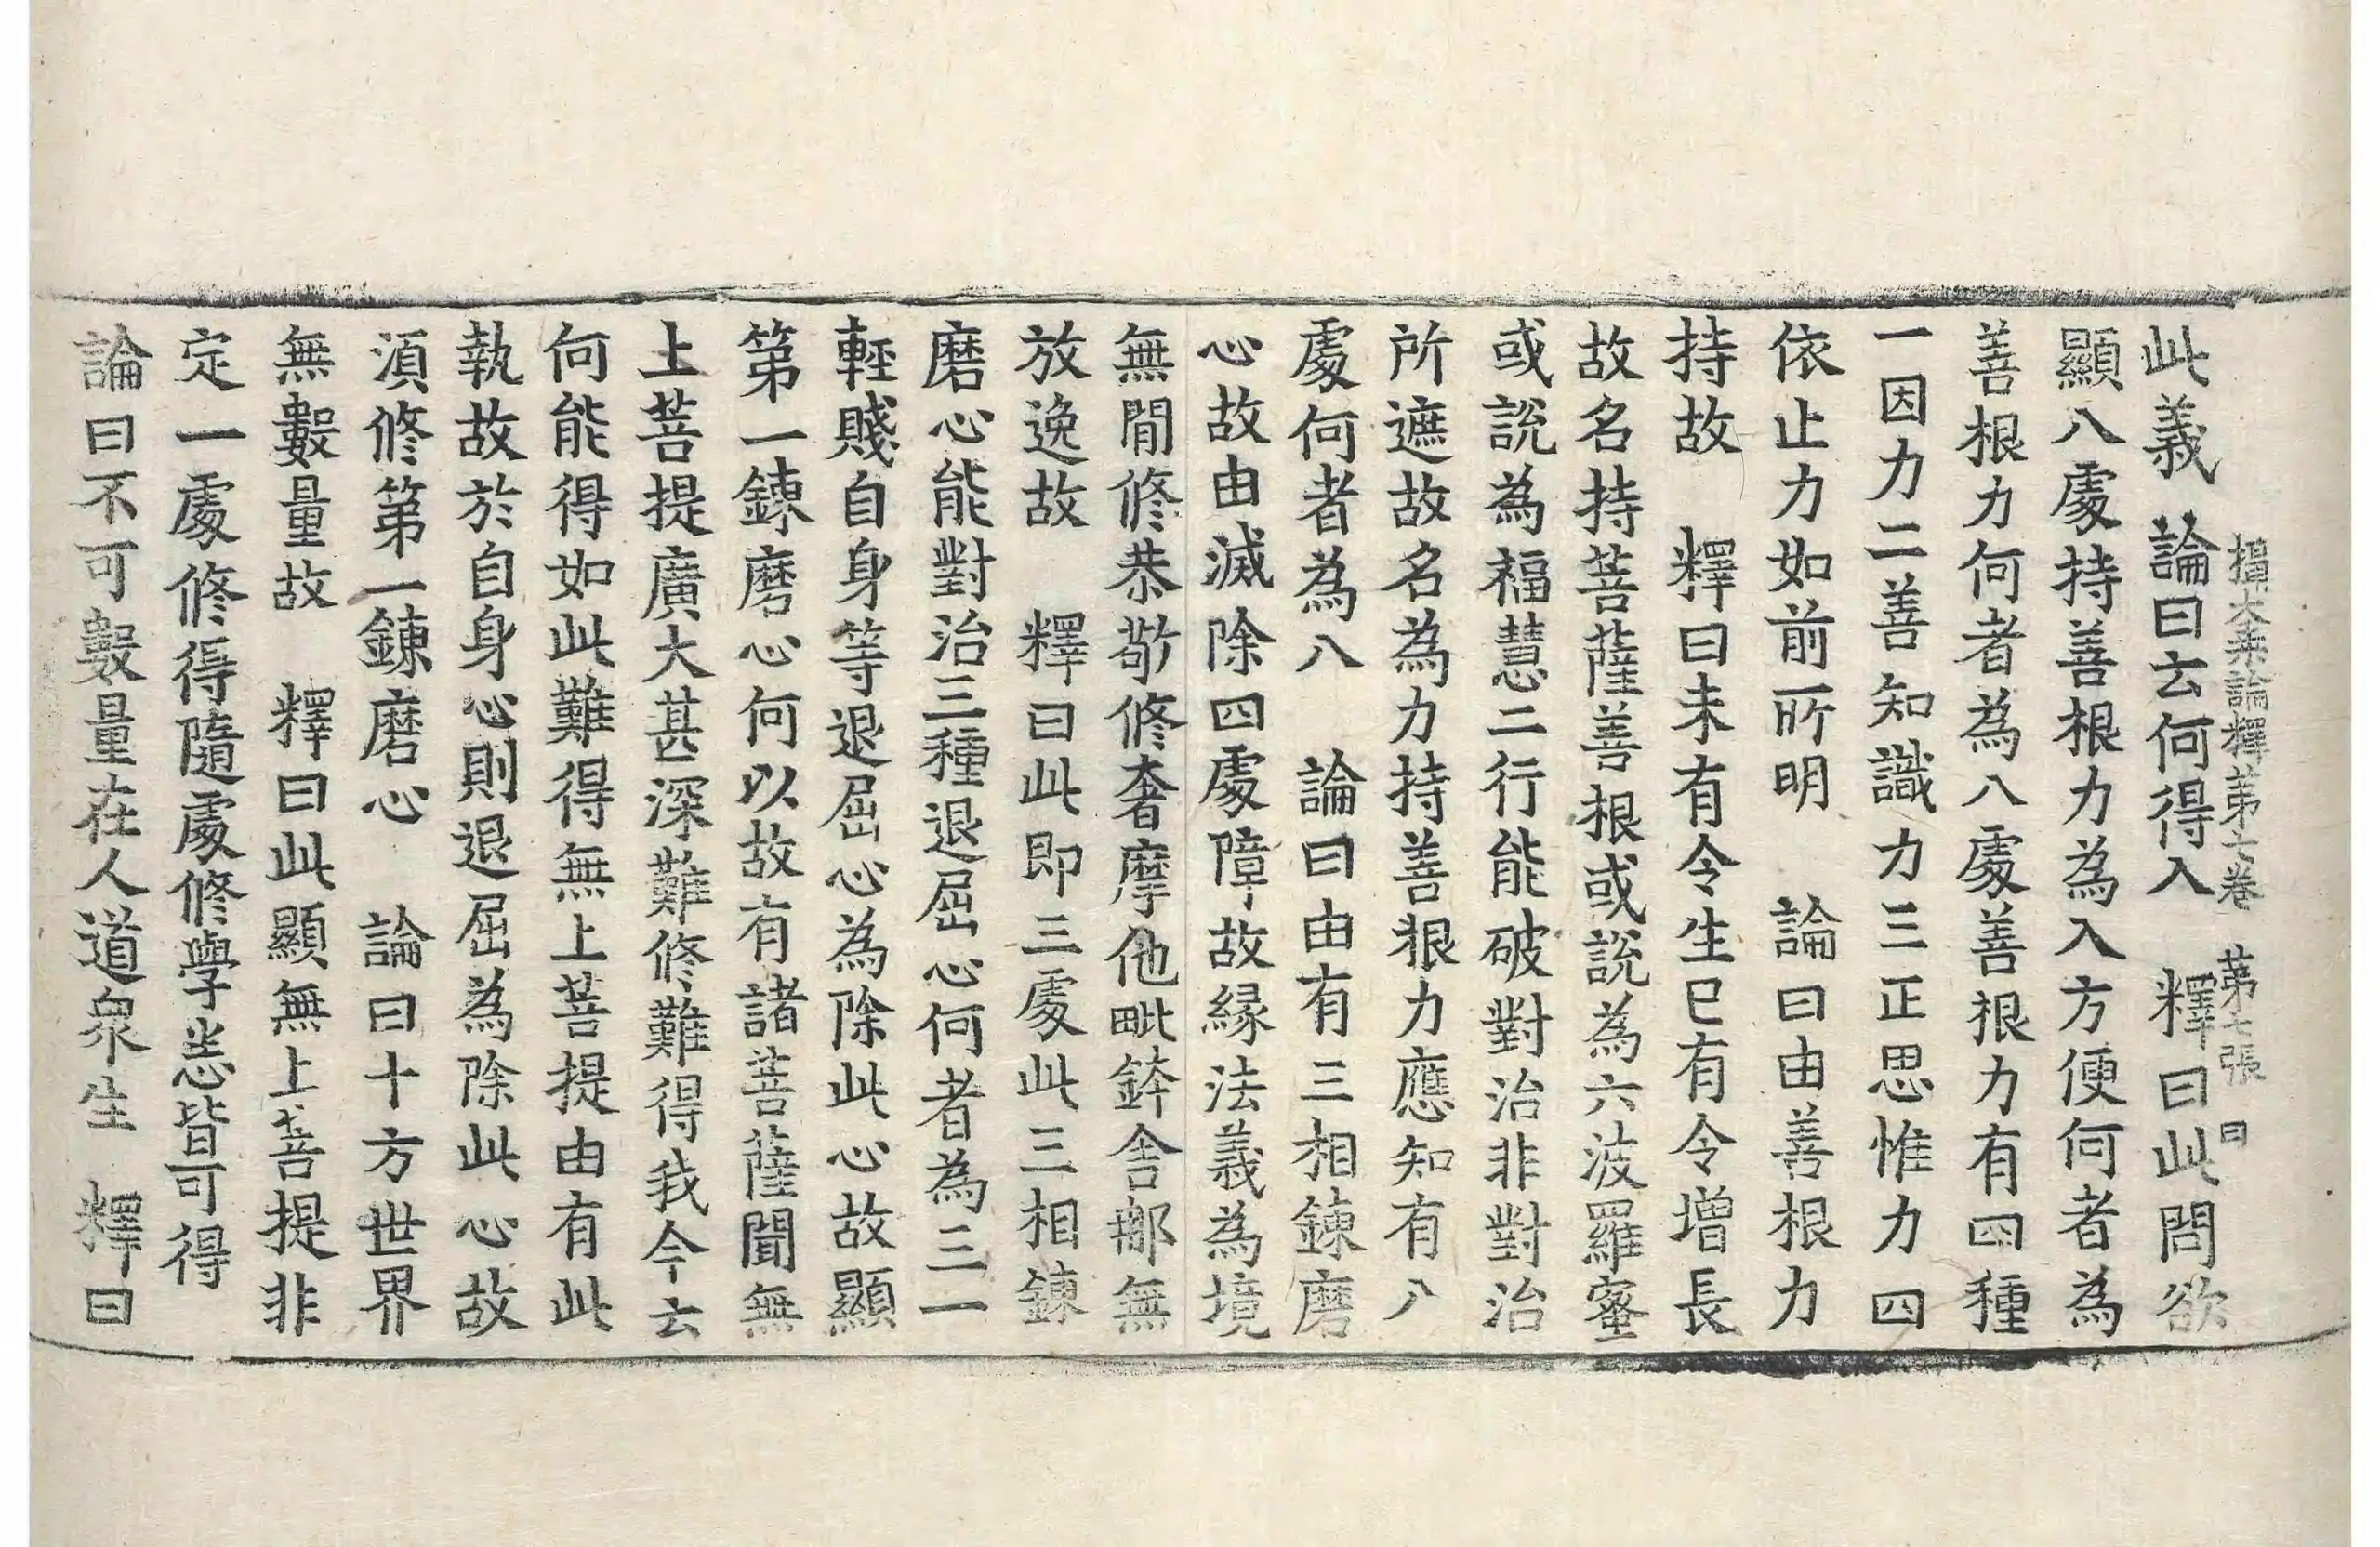 攝大乗論釋第七卷　第七張　曰
此義　論曰云何得入　釋曰此問欲
顯八處持善根力為入方便何者為
善根力何者為八處善根力有四種
一因力二善知識力三正思惟力四
依止力如前所明　論曰由善根力
持故　釋曰未有令生已有令增長
故名持菩薩善根或說為六波羅蜜
或說為福慧二行能破對治非對治
所遮故名為力持善根力應知有八
處何者為八　論曰由有三相鍊磨
心故由滅除四處障故緣法義為境
無閒修恭敬修奢摩他毗鉢舍那無
放逸故　釋曰此即三處此三相鍊
磨心能對治三種退屈心何者為三一
輕賤自身等退屈心為除此心故顯
第一鍊磨心何以故有諸菩薩聞無
上菩提廣大甚深難修難得我今云
何能得如此難得無上菩提由有此
執故於自身心則退屈為除此心故
須修第一鍊磨心　論曰十方世界
無數量故　釋曰此顯無上菩提非
定一處修得隨處修學悉皆可得
論曰不可數量在人道衆生　釋曰